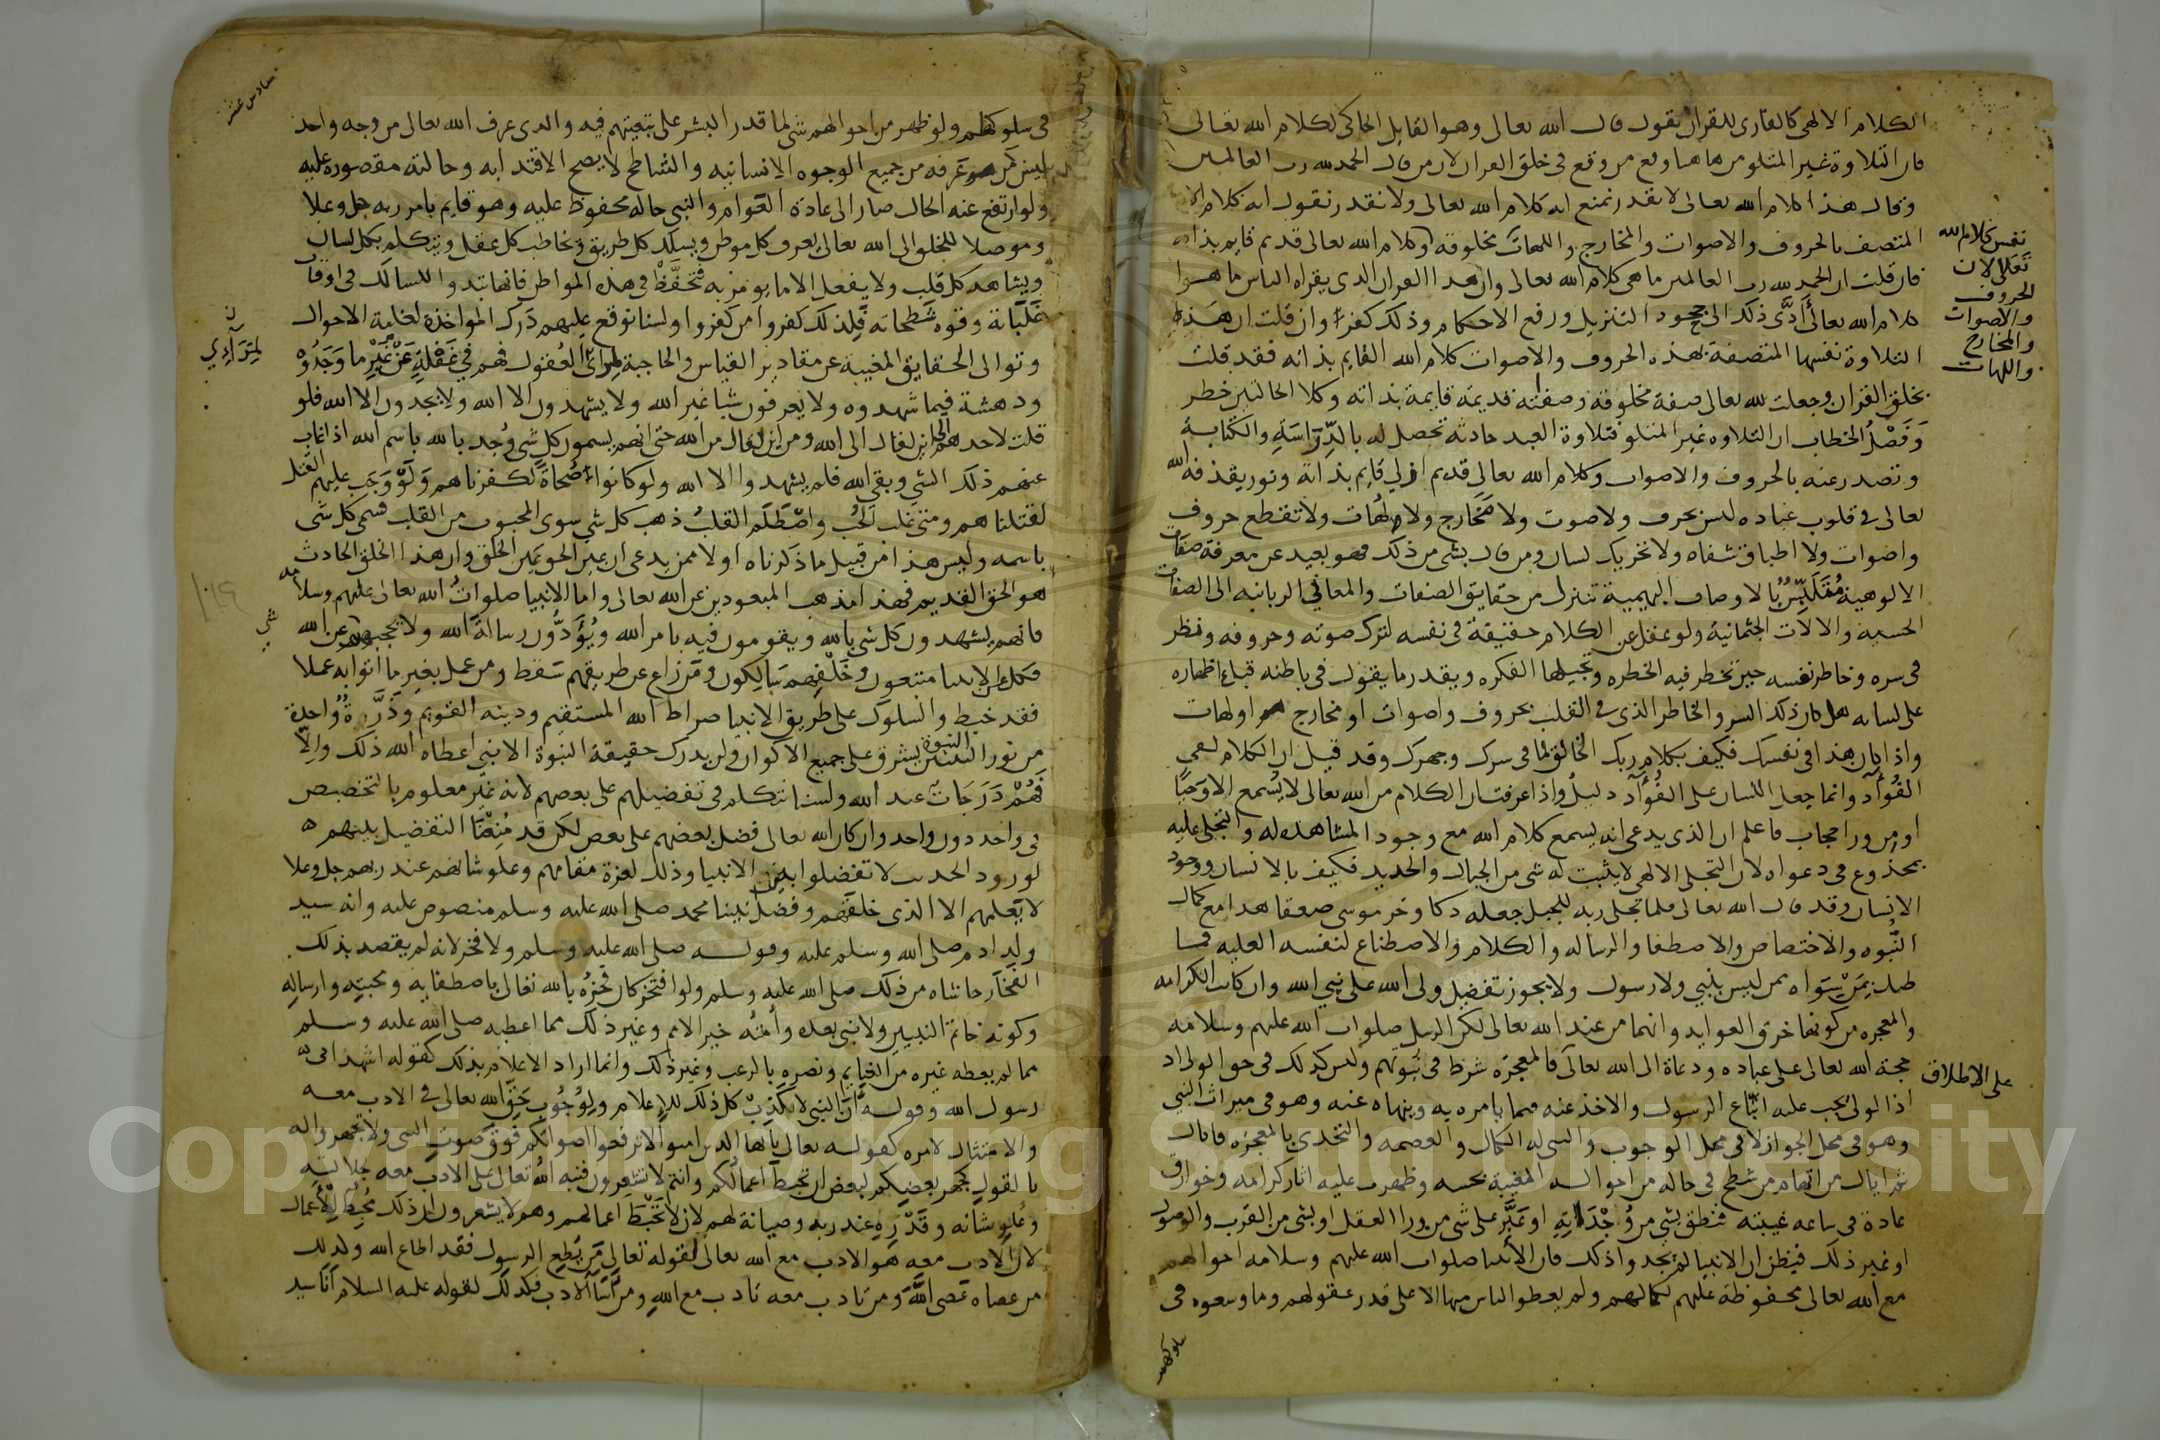 الكلام الالهى كالقارى للقران يقول قال الله تعالى وهو القايل الحاكى لكلام الله تعالى
فان التلاوة غير المتلو من هاهنا وقع من وقع فى خلق القران لان من قال الحمد لله رب العالمين
وقال هذا كلام الله تعالى لا نقدر نمنع انه كلام الله تعالى ولا نقدر نقول انه كلام الله
المتصف بالحروف والاصوات والمخارج واللهات مخلوقة وكلام الله تعالى قديم قايم بذاته
نفس كلام الله
تعالى لان
الحروف
والاصوات
والمخارج
واللهات
فان قلت ان الحمد لله رب العالمين ما هى كلام الله تعالى وان هذا القران الذى يقراه الناس ما هو
كلام الله تعالى أدَّى ذلك الى جحود التنزيل ورفع الاحكام وذلك كفر وان قلت ان هذه
التلاوة نفسها المتصفة بهذه الحروف والاصوات كلام الله القايم بذاته فقد قلت
بخلق القران وجعلت لله تعالى صفة مخلوقة وصفته قديمة قايمة بذاته وكلا الحالتين خطر
وَفَصْلُ الخطاب ان التلاوه غير المتلو فتلاوة العبد حادثة تحصل له بالدِّرَاسَةِ والكتابة
وتصدر عنه بالحروف والاصوات وكلام الله تعالى قديم ازلي قايم بذاته ونور يقذفه الله
تعالى فى قلوب عباده ليس بحرف ولا صوت ولا مَخَارج ولا لهات ولا تقطع حروف
واصوات ولا اطباق شفاه ولا تحريك لسان ومن قال بشى من ذلك فهو بعيد عن معرفة صفات
الالوهية مُتَلَبِّسٌ بالاوصاف البهيمية تنزل من حقايق الصفات والمعانى الربانيه الى الصفات
الحسيه والالات الجثمانية ولو عقل عن الكلام حقيقة فى نفسه لترك صوته وحروفه ونظر
فى سره وخاطر نفسه حين تخطر فيه الخطره وتجيلها الفكره ويقدر ما يقول فى باطنه قبل اظهاره
على لسانه هل كان ذلك السر والخاطر الذى فى القلب بحروف واصوات او مخارج او لهات
واذا بان هذا فى نفسك فكيف بكلام ربك الخالق لما فى سرك وجهرك وقد قيل ان الكلام لفى
الفُؤآد وانما جعل اللسان على الفُؤآد دليلُ واذا عرفت ان الكلام من الله تعالى لا يُسمع الا وَحيًا
او من ورا حجاب فاعلم ان الذى يدعى انه يسمع كلام الله مع وجود المشاهده له والتجلى عليه
مخدوع فى دعواه لان التجلى الالهى لا يثبت له شى من الجبال والحديد فكيف بالانسان ووجود
الانسان وقد قال الله تعالى فلما تجلى ربه للجبل جعله دكا وخر موسى صعقا هذا مع كمال
النبوه والاختصاص والاصطفا والرساله والكلام والاصطناع لنفسه العليه فما
ظنك بمَنْ سِوَاه ممن ليس بنبي ولا رسول ولا يجوز تفضيل ولى الله على نبي الله وان كانت الكرامه
والمعجزه من كونها خرق العوايد وانهما من عند الله تعالى لكن الرسل صلوات الله عليهم وسلامه
حجة الله تعالى على عباده ودعاة الى الله تعالى فالمعجزة شرط فى نبوتهم وليس كذلك فى حق الولى اذ
على الاطلاق
اذ الولى يجب عليه اتباع الرسول والاخذ عنه فيما يامره به وينهاه عنه وهو فى ميراث النبى
وهو فى محل الجواز لا فى محل الوجوب والنبى له الكمال والعصمه والتحدى بالمعجزه فاياك
ثم اياك من اتهام من شطح فى حاله من احواله المغيبة بحسه وظهرت عليه اثار كرامه وخوارق
عادة فى ساعه غيبته فنطق بشى من وُجْدَانِهِ او عَبَّر على شى من ورا العقل او بشى من القرب والوصول
او غير ذلك فيظن ان الانبيا لم يجدوا ذلك فان الانبيا صلوات الله عليهم وسلامه احوالهم
مع الله تعالى محفوظة عليهم لكمالهم ولم يعطوا الناس منها الا على قدر عقولهم وما وسعوه فى
سلوكهم
سادس عشر
فى سلوكهم ولو ظهر من احوالهم شى لما قدر البشر على تبعيتهم فيه والذى عرف الله تعالى من وجه واحد
ليس كمن عرفه من جميع الوجوه الانسانيه والشاطح لا يصح الاقتدا به وحالته مقصورة عليه
ولو ارتفع عنه الحال صار الى عادة العوام والنبى حاله محفوظ عليه وهو قايم بامر ربه جل وعلا
وموصلا للخلق الى الله تعالى يعرف كل موطن ويسلك كل طريق ويخاطب كل عقل ويتكلم بكل لسان
ويشاهد كل قلب ولا يفعل الا ما يومر به فتحفَّظْ فى هذه المواطن فانها تبدوا للسالك فى اوقات
غَلَبَاته وقوه شَطَحاته فلذلك كفروا من كفروا ولسنا نوقع عليهم دَرَك المواخذة لغلبة الاحوال
وتوالى الحقايق المغيبة عن مقادير القياس والحاجبة العُقول فهم فى غَفْلَةٍ عَنْ غَيْرِ ما وَجَدُوْه
لِمَرَآءِي
ودهشة فيما شهدوه ولا يعرفون شيا غير الله ولا يشهدون الا الله ولا يجدون الا الله فلو
قلت لاحدهم الى اين لقال الى الله ومن اين لقال من الله حتى انهم يسمون كل شى وُجد بالله باسم الله اذ غاب
عنهم ذلك الشى وبقى الله فلم يشهدوا الا الله ولو كانوا أصْحَاةً لكفرناهم وَلَوْ وَجَب عليهم القتل
لقتلناهم ومتى غلب الحُبُّ واصْطَلَم القلبُ ذهب كل شى سوى المحبوب من القلب فسمى كل شى
باسمه وليس هذا من قبيل ما ذكرناه اولا ممن يدعى ان عين الحق عين الخلق وان هذا الخلق الحادث
هو الحق القديم فهذا مذهب المبعودين عن الله تعالى واما الانبيا صلواتُ الله تعالى عليهم وسلامه
فانهم يشهدون كل شى بالله ويقومون فيه بامر الله ويُؤَدُّون رسالةَ الله ولا يحجبهم عن الله
شى
فكل الانبيا متبعون وخَلْفهم سَالِكون ومَن زاغ عن طريقهم سَقط ومن عمل بغير ما اتوا به عملا
فقد خبط والسلوك على طريق الانبيا صراط الله المستقيم ودينه القويم وذَرَّةٌ وُاحِدة
من نور النبوة تشرق على جميع الاكوان ولن يدرك حقيقة النبوة الا نبي اعطاه الله ذلك وإلّا
فَهُمْ دَرَجَاتٌ عند الله ولسنا نتكلم فى تفضيلهم على بعضهم لانه غير معلوم بالتخصيص
فى واحد دون واحد وان كان الله تعالى فضل بعضهم على بعض لكن قد مُنِعْنَا التفضيل بينهم
لورود الحديث لا تفضلوا بين الانبيا وذلك لعزة مقامهم وعلو شانهم عند ربهم جل وعلا
لا يَعلمهم الا الذى خلقهم وفضل نبينا محمد صلى الله عليه وسلم منصوص عليه وانه سيد
ولد ادم صلى الله وسلم عليه وقوله صلى الله عليه وسلم ولا فخر لانه لم يقصد بذلك
الفَخَار حاشاه من ذلك صلى الله عليه وسلم ولو افتخر كان فَخرُه بالله تعالى باصطفايه ومحبته وارساله
وكونه خاتم النبيين ولا نبى بعده وأمَّتُه خير الامم وغير ذلك مما اعطيه صلى الله عليه وسلم
مما لم يعطه غيره من الغنايم ونصره بالرعب وغير ذلك وانما اراد الاعلام بذلك كقوله اشهد انى
رسول الله وقوله أنَا النبى لا كَذِبْ كل ذلك للإعلام ولِوُجُوب حَقّ الله تعالى فى الادب معه
والامتثال لامره كقوله تعالى يا ايها الذين امنوا لا ترفعوا اصواتكم فوق صوت النبى ولا تجهروا له
بالقول كجهر بعضكم لبعض ان تحبط اعمالُكم وانتم لا تشعرون فنبه اللهُ تعالى على الادب معه جلالتِه
وعُلوِ شَأنه وقَدْرِهِ عند ربه وصيانة لهم لان لا تَحْبَطَ اعمالهم وهم لا يشعرون اذ ذلك مُحْبِطُ الْأَعمال
لان الادب معه هو الادب مع الله تعالى لقوله تعالى مَن يُطِعِ الرسول فقد اطاع الله ولذلك
من عصاه عَصى اللهَ ومن تادب معه تادب مع اللهِ ومن أسَاَ الادبَ فكذلك لقوله عليه السلام أنا سيد